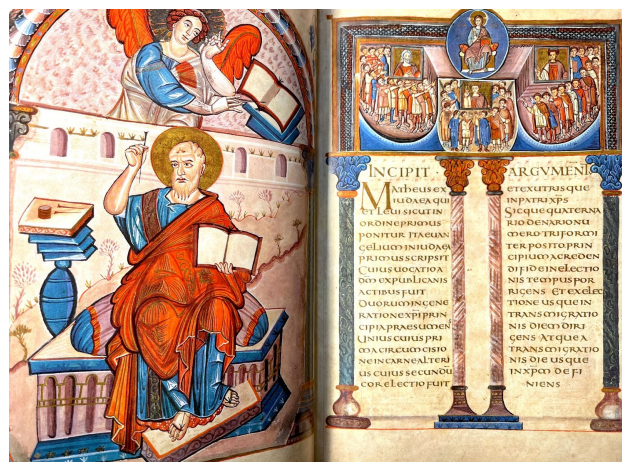 INCIPIT · ARGVMENT
Matheus ex
iudaea qui
et Leui sicut in
ordine primus
ponitur Ita euan
gelium in iudaea
primus scripsit
Cuius uocatio a
dm ex publicanis
actibus fuit
duorum in gene
ratione xpi prin
cipia praesumens
Unius cuius pri
ma circumcisio
ne in carne alteri
us cuius secundu
cor electio fuit
et ex utrisque
in patri xps
Sic que quaterna
rio denario nu
mero triformi
ter posito prin
cipium a creden
di fide in electio
nis tempus por
rigens Et ex elec
tione usque in
transmigratio
nis diem diri
gens Atque a
transmigratio
nis die usque
in xpm defi
niens